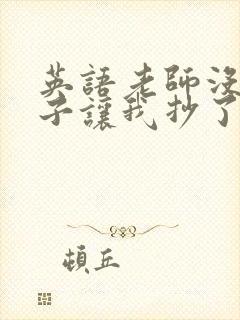 英語老師沒
子讓我抄了
頓丘